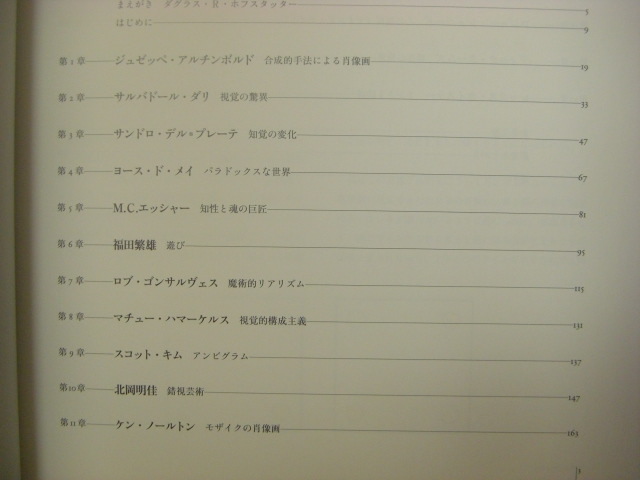 まえがき ダグラス・R・ホフスタッター 5
はじめに 9
第1章 ジュゼッペ・アルチンボルド 合成的手法による肖像画 19
第2章 サルバドール・ダリ 視覚の驚異 33
第3章 サンドロ・デル＝プレーテ 知覚の変化 47
第4章 ヨース・ド・メイ パラドックスな世界 67
第5章 M.C.エッシャー 知性と魂の巨匠 81
第6章 福田繁雄 遊び 95
第7章 ロブ・ゴンサルヴェス 魔術的リアリズム 115
第8章 マチュー・ハマーケルス 視覚的構成主義 131
第9章 スコット・キム アンビグラム 137
第10章 北岡明佳 錯視芸術 147
第11章 ケン・ノールトン モザイクの肖像画 163